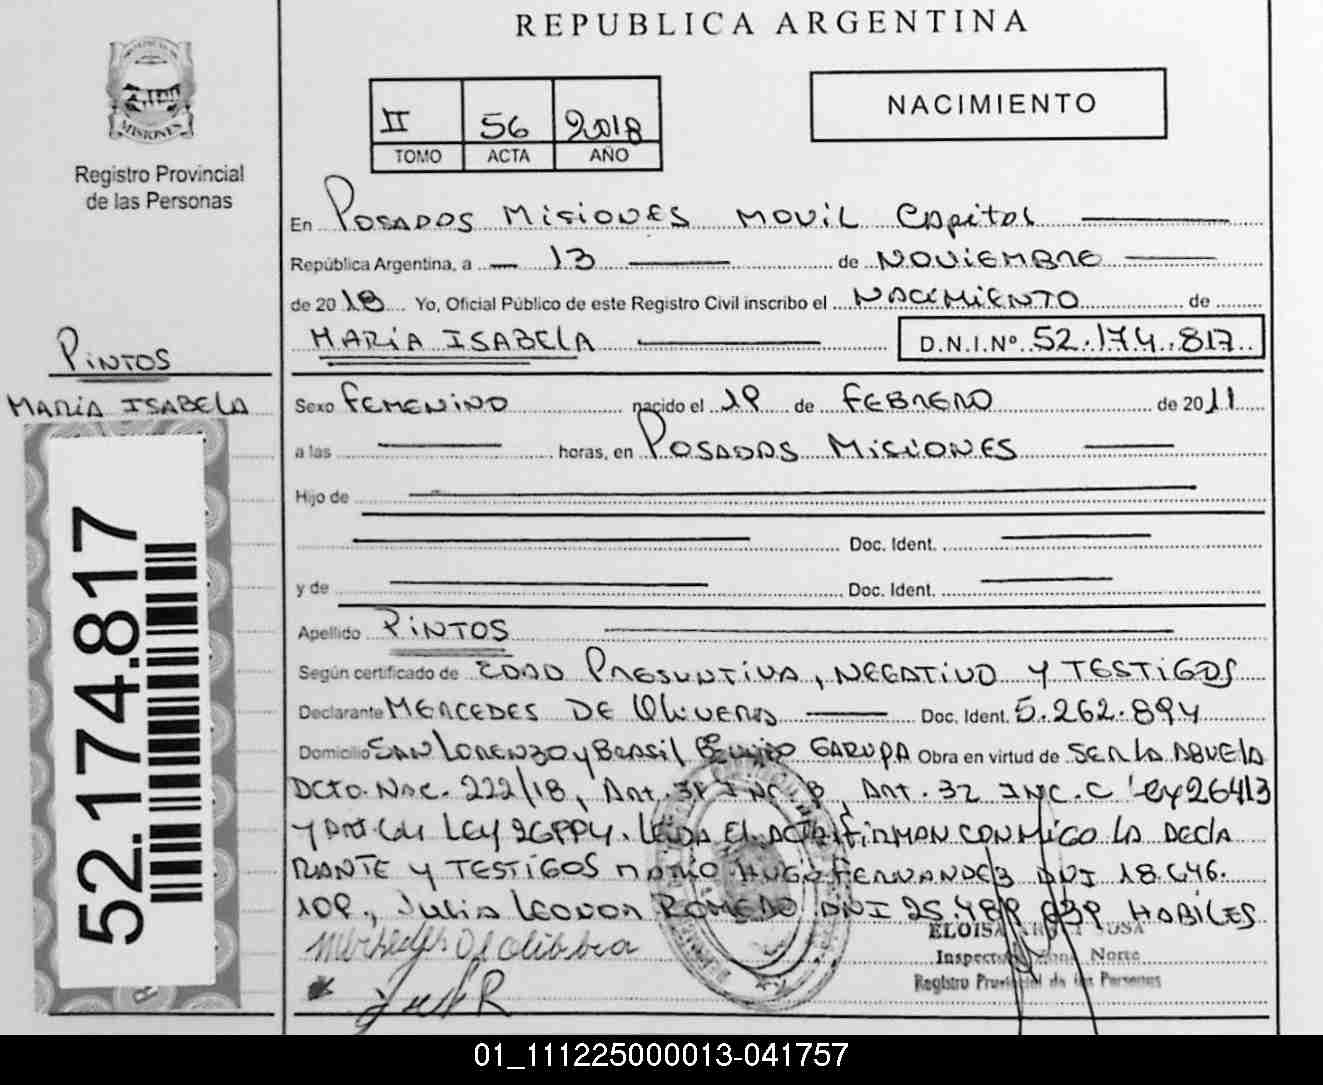 REPUBLICA ARGENTINA
MISIONES
Registro Provincial
de las Personas
II 56 2018
TOMO ACTA AÑO
NACIMIENTO
En POSADAS MISIONES MOVIL CAPITAL
República Argentina, a 13 de NOVIEMBRE
de 2018 Yo, Oficial Público de este Registro Civil inscribo el NACIMIENTO de
MARÍA ISABELA D.N.I.Nº 52.174.817
PINTOS
MARÍA ISABELA
52.174.817
Sexo FEMENINO nacido el 19 de FEBRERO de 2011
a las horas, en POSADAS MISIONES
Hijo de
Doc. Ident.
y de Doc. Ident.
Apellido PINTOS
Según certificado de EDAD PRESUNTIVA, NEGATIVO Y TESTIGOS
Declarante MERCEDES DE OLIVERA Doc. Ident. 5.262.894
Domicilio SAN LORENZO y BRASIL GARUPA Obra en virtud de SER LA ABUELA
DCTO. NAC. 222/18, ART. INC. B, ART. 32 INC. C LEY 26413
Y LEY LEIDA EL ACTA FIRMAN CONMIGO LA DECLA
RANTE Y TESTIGOS MARIO HUGO FERNANDEZ DNI 18.646.
109, JULIA LEONOR ROMERO DNI HABILES
ELOISA SOSA
Inspectora Zona Norte
Registro Provincial de las Personas
01_111225000013-041757